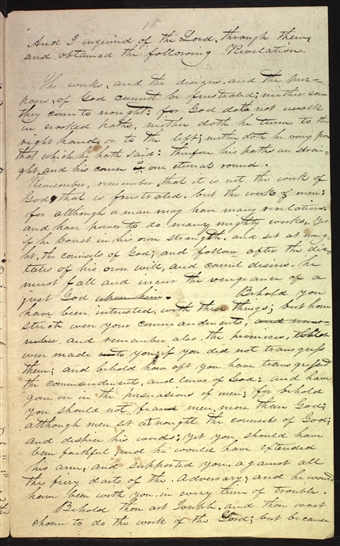 And I inquired of the Lord, through them,
and obtained the following Revelation.
The works, and the designs, and the pur-
poses, of God cannot be frustrated; neither can
they come to nought: for God doth not walk
in crooked paths, neither doth he turn to the
right hand, or to the left; neither doth he vary from
that which he hath said: therefore his paths are strai-
ght, and his course is one eternal round.
Remember, remember, that it is not the work of
God, that is frustrated, but the work of men;
for although a man may have many revelations,
and have power to do many mighty works, yet
if he boast in his own strength, and set at nou-
ght, the counsels of God; and follow after the dic-
tates of his own will, and carnal desires. he
must fall and incur the vengeance of a
just God upon him. Behold you
have been intrusted, with these things; but how
strict were your commandments,
and remember also, the promises,
were made to you, if you did not transgress
them; and behold how oft you have transgressed
the commandments, and laws of God; and have
gone on in the persuasions of men; for behold
you should not feared men, more than God;
although men set at nought the counsels of God;
and despise his words; yet you, should have
been faithful, and he would have extended
his arm, and supported you, against all
the firey darts of the Adversary; and he would
have been with you, in every time of trouble.
Behold thou art Joseph, and thou wast
chosen to do the work of the Lord; but because